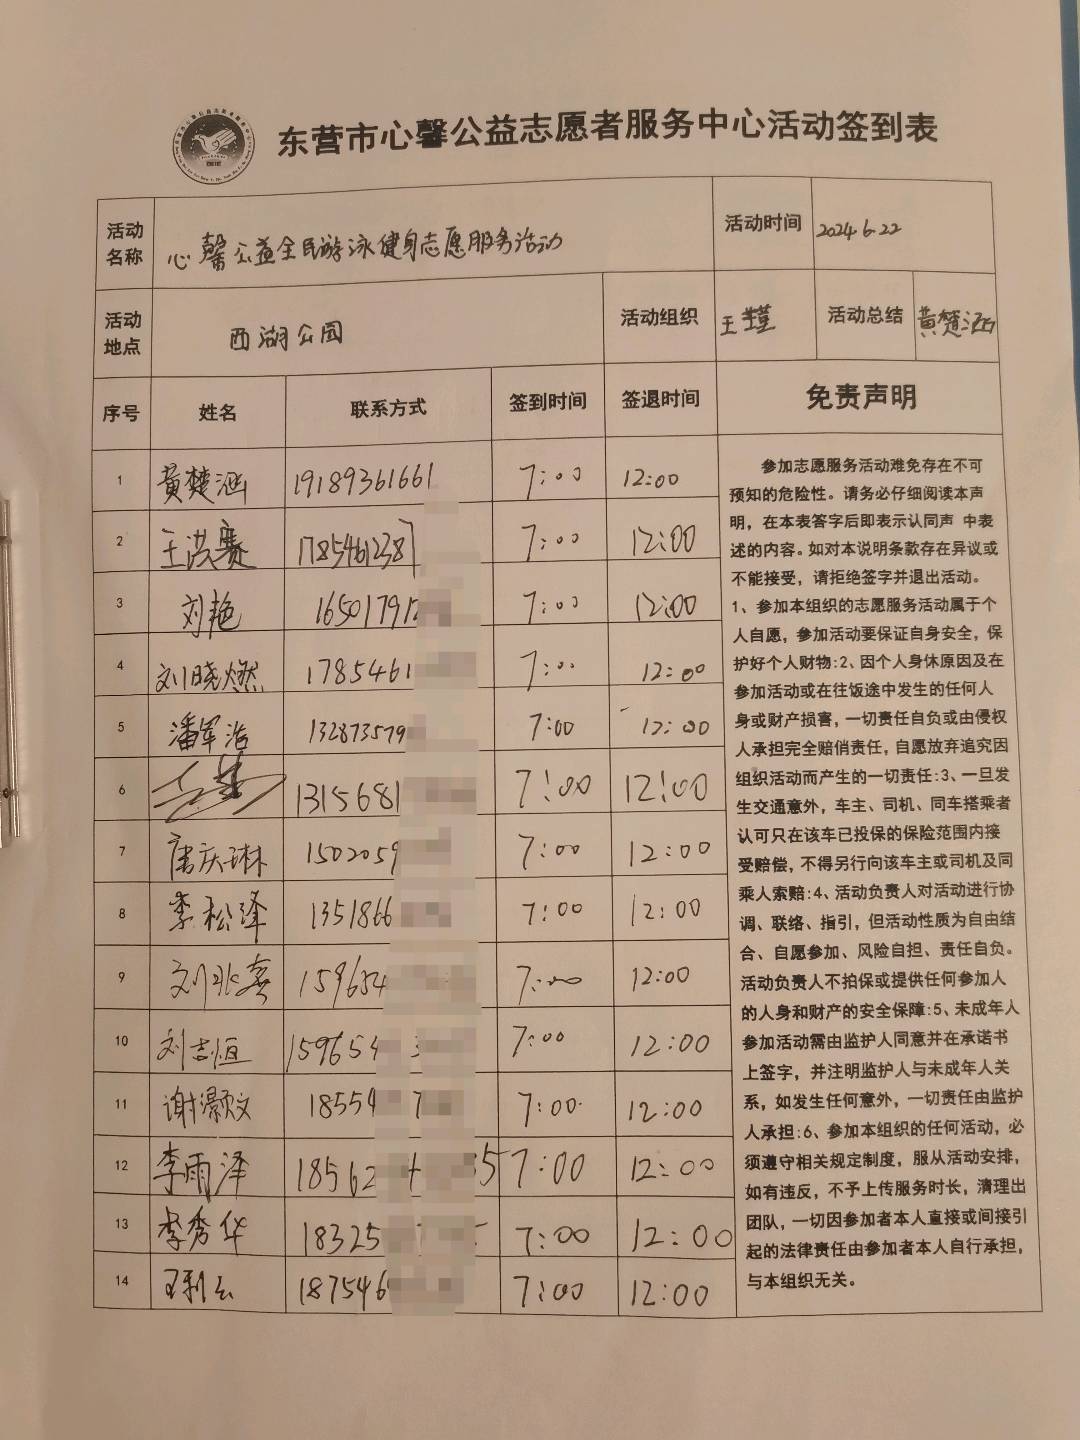 东营市心馨公益志愿者服务中心活动签到表
活动名称 心馨公益全民游泳健身志愿服务活动 活动时间 2024.6.22
活动地点 西湖公园 活动组织 王 活动总结 黄楚涵
序号 姓名 联系方式 签到时间 签退时间 免责声明
1 黄楚涵 19189361661 7:00 12:00
2 王洪赛 17854612387 7:00 12:00
3 刘艳 1650179 7:00 12:00
4 刘晓燃 1785461 7:00 12:00
5 潘军浩 132873579 7:00 12:00
6 1315681 7:00 12:00
7 唐庆琳 1502059 7:00 12:00
8 李松泽 1351866 7:00 12:00
9 刘兆喜 159654 7:00 12:00
10 刘吉恒 159654 7:00 12:00
11 谢灏文 18554 7 7:00 12:00
12 李雨泽 18562 5 7:00 12:00
13 李秀华 18325 7:00 12:00
14 王利云 187546 7:00 12:00
参加志愿服务活动难免存在不可
预知的危险性。请务必仔细阅读本声
明，在本表答字后即表示认同声 中表
述的内容。如对本说明条款存在异议或
不能接受，请拒绝签字并退出活动。
1、参加本组织的志愿服务活动属于个
人自愿，参加活动要保证自身安全，保
护好个人财物:2、因个人身休原因及在
参加活动或在往饭途中发生的任何人
身或财产损害，一切责任自负或由侵权
人承担完全赔俏责任，自愿放弃追究因
组织活动而产生的一切责任:3、一旦发
生交通意外，车主、司机、同车搭乘者
认可只在该车已投保的保险范围内接
受赔偿，不得另行向该车主或司机及同
乘人索赔:4、活动负责人对活动进行协
调、联络、指引，但活动性质为自由结
合、自愿参加、风险自担、责任自负。
活动负责人不拍保或提供任何参加人
的人身和财产的安全保障:5、未成年人
参加活动需由监护人同意并在承诺书
上签字，并注明监护人与未成年人关
系，如发生任何意外，一切责任由监护
人承担:6、参加本组织的任何活动，必
须遵守相关规定制度，服从活动安排，
如有违反，不予上传服务时长，清理出
团队，一切因参加者本人直接或间接引
起的法律责任由参加者本人自行承担，
与本组织无关。